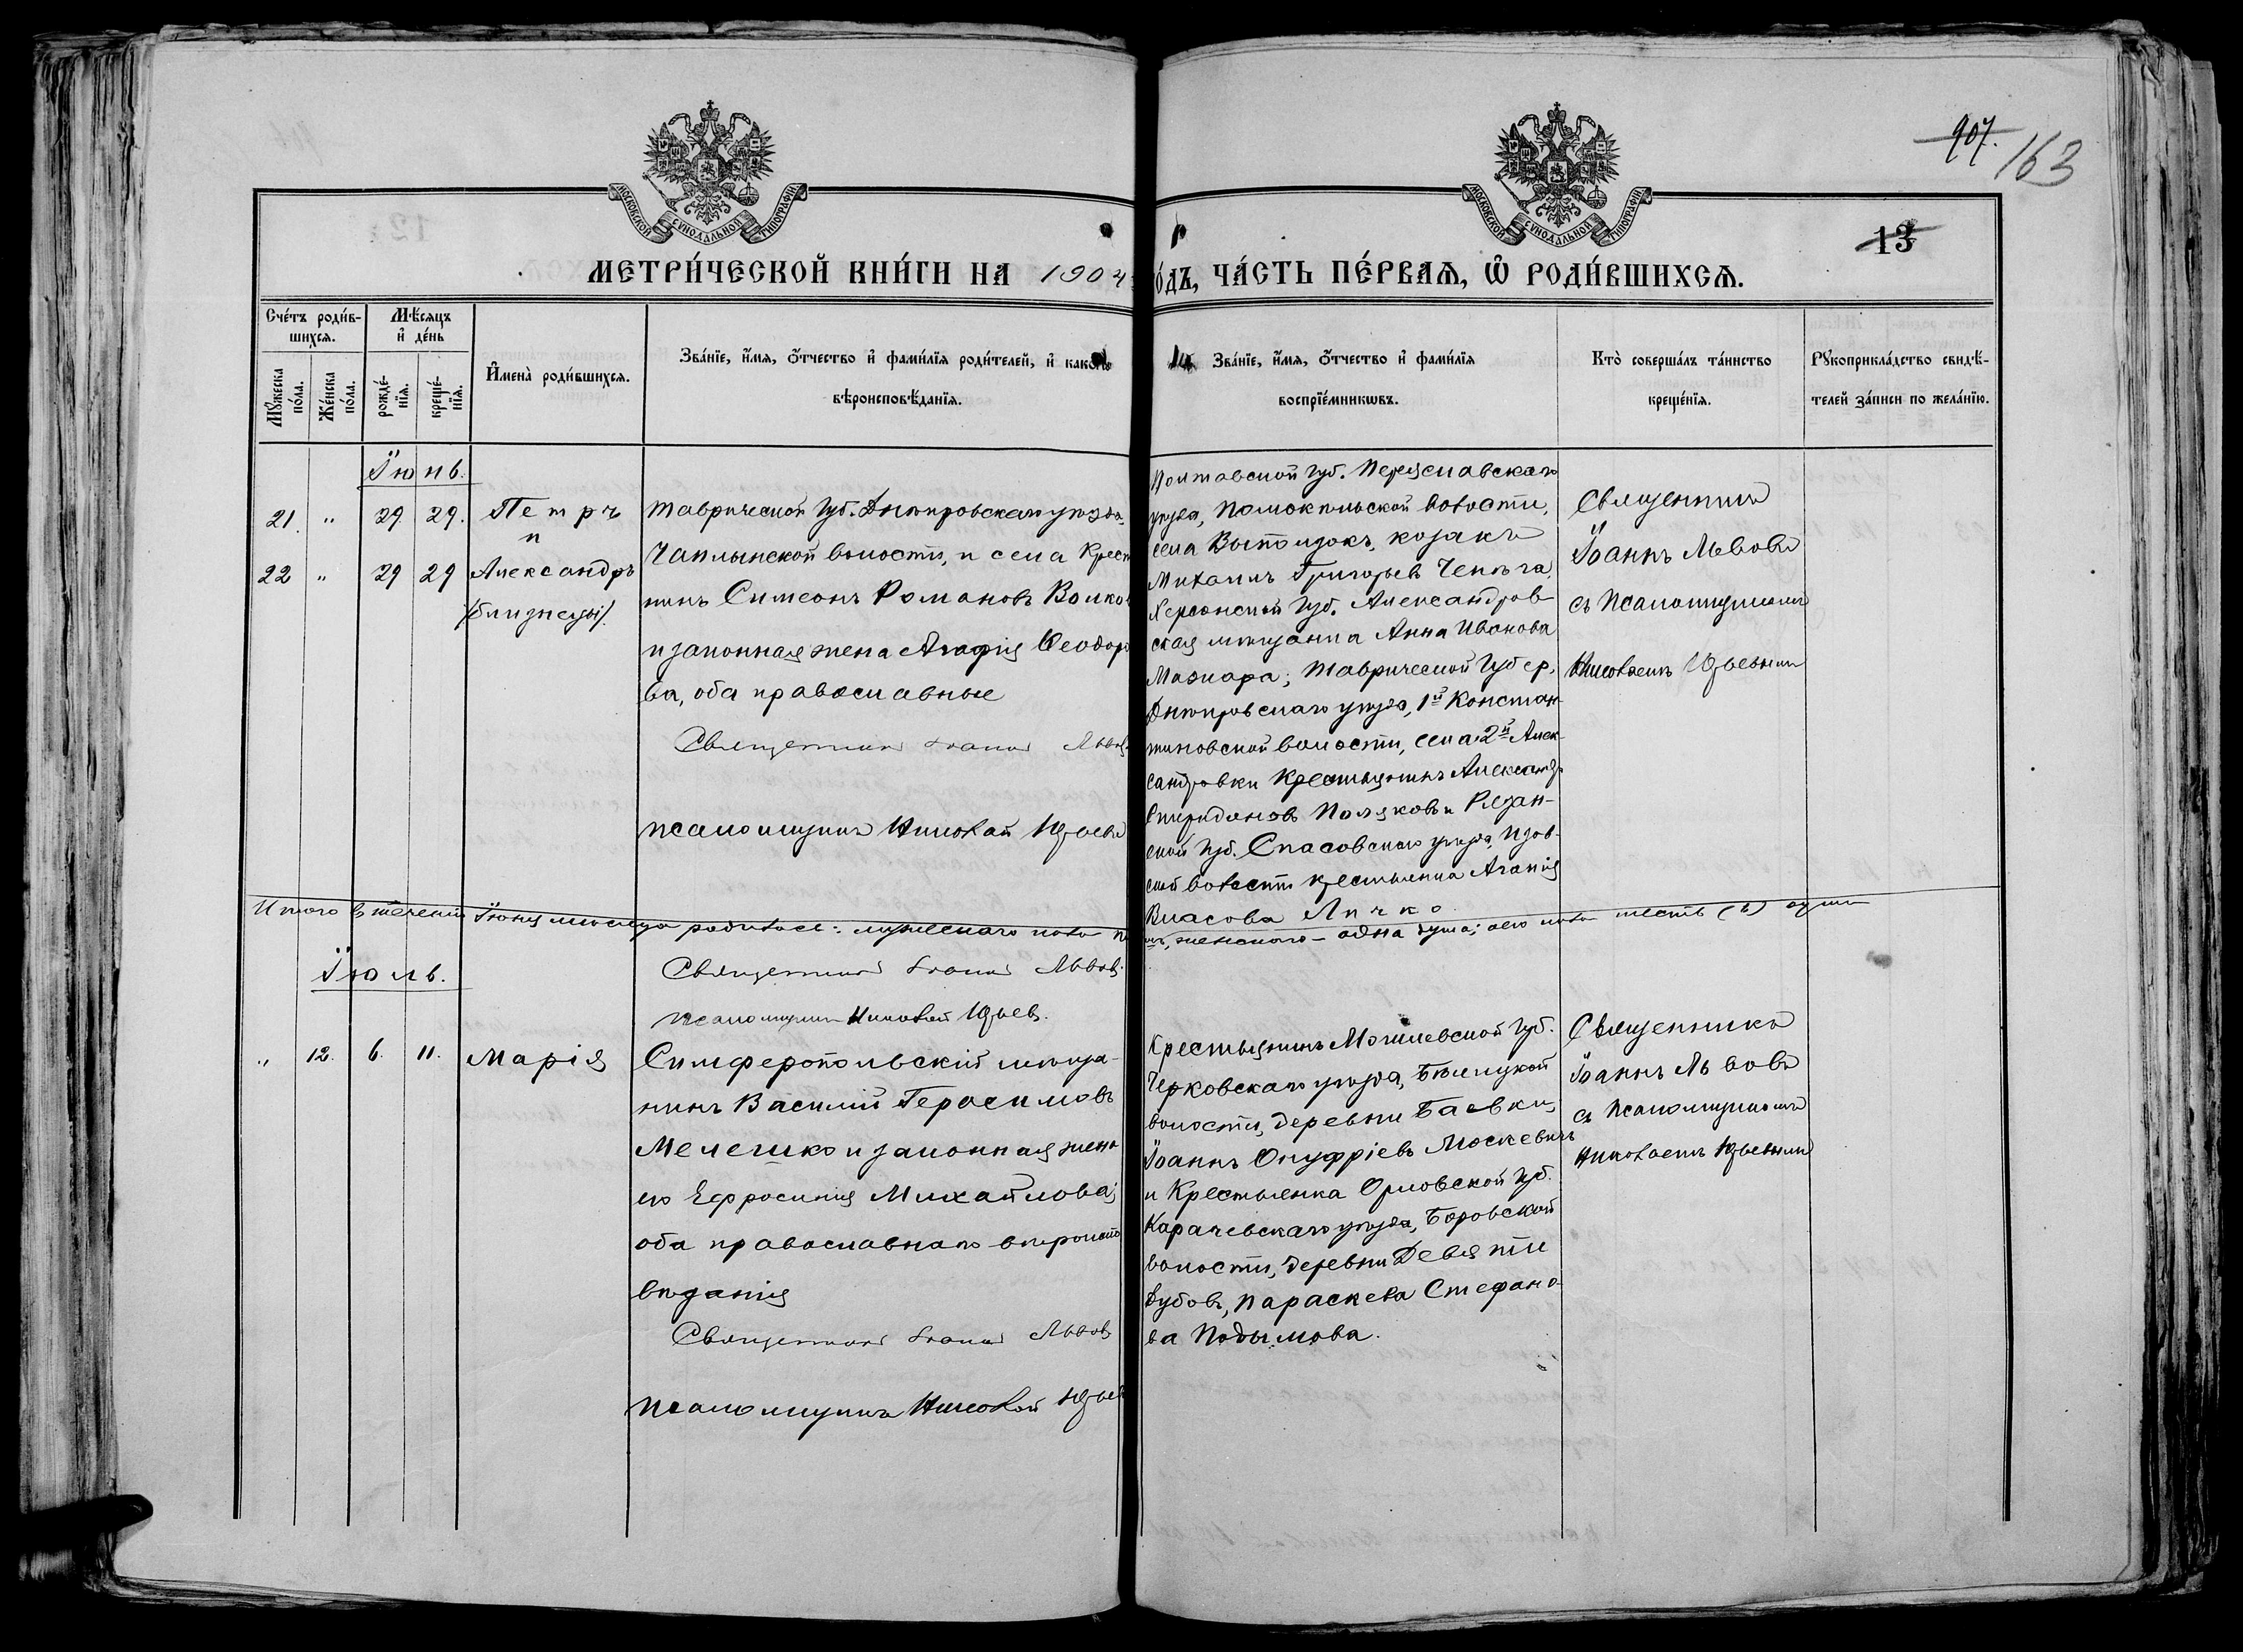 907. 163
13
МОСКОВСКОЙ СѴНОДАЛЬНОЙ ТИПОГРАФІИ
МОСКОВСКОЙ СѴНОДАЛЬНОЙ ТИПОГРАФІИ
МЕТРИ́ЧЕСКОЙ КНИ́ГИ НА 1904 ГО́ДЪ, ЧА́СТЬ ПЕ́РВАЯ, Ѡ РОДИ́ВШИХСЯ.
Сче́тъ роди́в-
шихся.
Му́жеска по́ла.
Же́нска по́ла.
Мѣ́сяцъ
и де́нь
рожде́-
нїя.
креще́-
нїя.
Имена̀ роди́вшихся.
Зва́нїе, и́мя, ѻ́тчество и фами́лїя роди́телей, и како́го
вѣроисповѣ́данїя.
Зва́нїе, и́мя, ѻ́тчество и фами́лїя
воспрїе́мникωвъ.
Кто̀ соверша́лъ та́инство
креще́нїя.
Рукоприкла́дство свидѣ́-
телей за́писи по жела́нїю.
Іюнь.
21. " 29. 29. Петръ
и
22 " 29 29 Александръ
/близнецы/.
Таврической Губ. Днѣпровскаго уѣзда
Чаплынской волости, и села Крест
нинъ Симеонъ Романовъ Волков
и законная жена Агафія Ѳеодоро
ва, оба православные
Священникъ Іоаннъ Львовъ
Псаломщикъ Николай Юрьевъ
Полтавской Губ. Переяславскаго
уѣзда, Помокльской волости,
села Выползокъ, козакъ
Михаилъ Григорьевъ Чепѣга,
Херсонской Губ. Александров-
ская мѣщанка Анна Иванова
Мазнара; Таврической Губер.
Днѣпровскаго уѣзда, 1й Констан-
тиновской волости, села 2й Алек-
сандровки Крестьянинъ Александръ
Спиридоновъ Поляковъ и Рязан-
ской Губ. Спасовскаго уѣзда,
волости крестьянка Агапія
Власова Личко
Священникъ
Іоаннъ Львовъ
съ Псаломщикомъ
Николаемъ Юрьевымъ
Итого въ теченіи Іюня мѣсяца родилось: мужескаго пола женскаго – одна душа; обоего пола шесть (6) душъ
Священникъ Іоаннъ Львовъ
Псаломщикъ Николай Юрьевъ.
Іюль.
" 12. 6. 11. Марія
Симферопольскій мѣща-
нинъ Василій Герасимовъ
Мелешко и законная жена
его Ефросинія Михайлова;
оба православнаго вѣроиспо
вѣданія
Священникъ Іоаннъ Львовъ
Псаломщикъ Николай Юрьев
Крестьянинъ Могилевской Губ.
Черковскаго уѣзда,
волости, деревни Баевки,
Іоаннъ Онуфріевъ Москевичъ
и Крестьянка Орловской Губ.
Карачевскаго уѣзда, Боровской
волости, деревни Девяти
Дубовъ, Параскева Стефано-
ва Подымова.
Священникъ
Іоаннъ Львовъ
съ Псаломщикомъ
Николаемъ Юрьевымъ